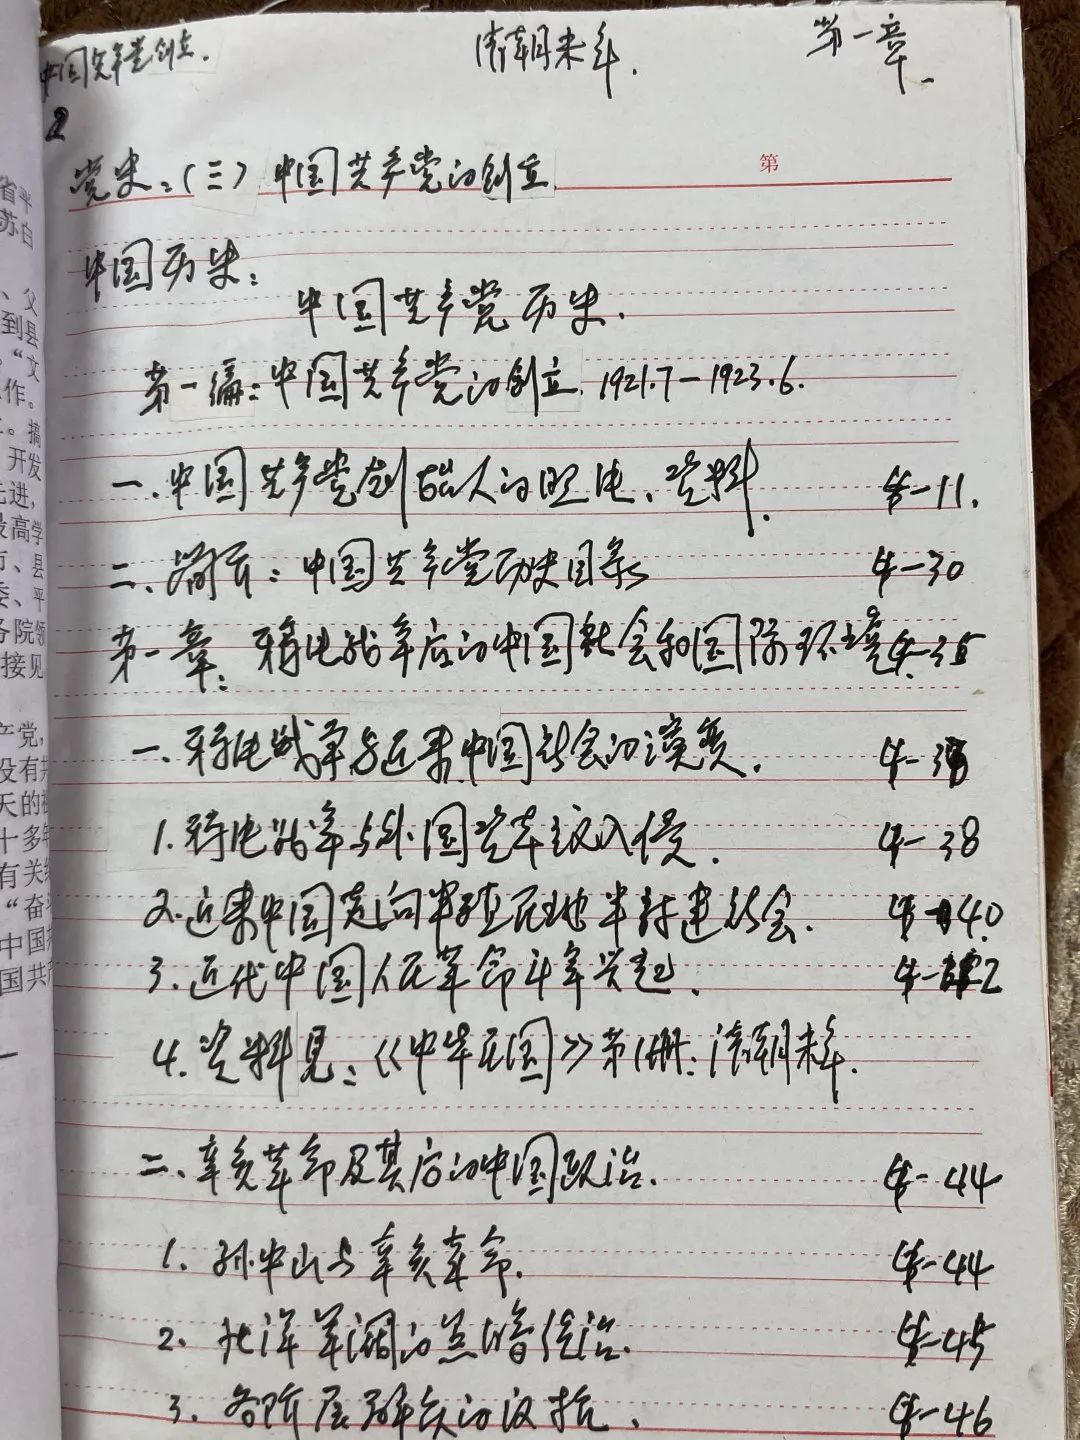 中国共产党创立.
清朝末年.
第一章.
2
第
党史:(三)中国共产党的创立.
中国历史:
中国共产党历史.
第一编:中国共产党的创立.1921.7—1923.6.
一.中国共产党创始人的照片、资料. 4—11.
二、简介:中国共产党历史目录 4—30
第一章:鸦片战争后的中国社会和国际环境 4—35
一.鸦片战争与近来中国社会的演变. 4—38
1.鸦片战争与外国资本主义入侵. 4—38
2.近来中国走向半殖民地半封建社会. 4—40
3.近代中国人民革命斗争兴起. 4—42
4.资料见:《中华民国》第1册:清朝末年.
二、辛亥革命及其后的中国政治. 4—44
1.孙中山与辛亥革命. 4—44
2.北洋军阀的黑暗统治. 4—45
3.各阶层群众的反抗. 4—46
省平
苏白
、父
到县
。“文
作。
。搞
开发
先进,
最高学
市、县
委、平
务院领
接见
产党,
没有共
天的
十多年
有关
“奋
中国共
国共产